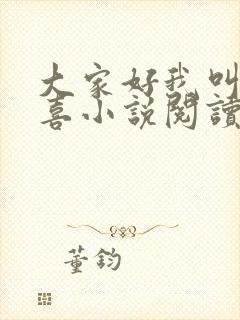 大家好我叫
喜小說閱讀
董鈞